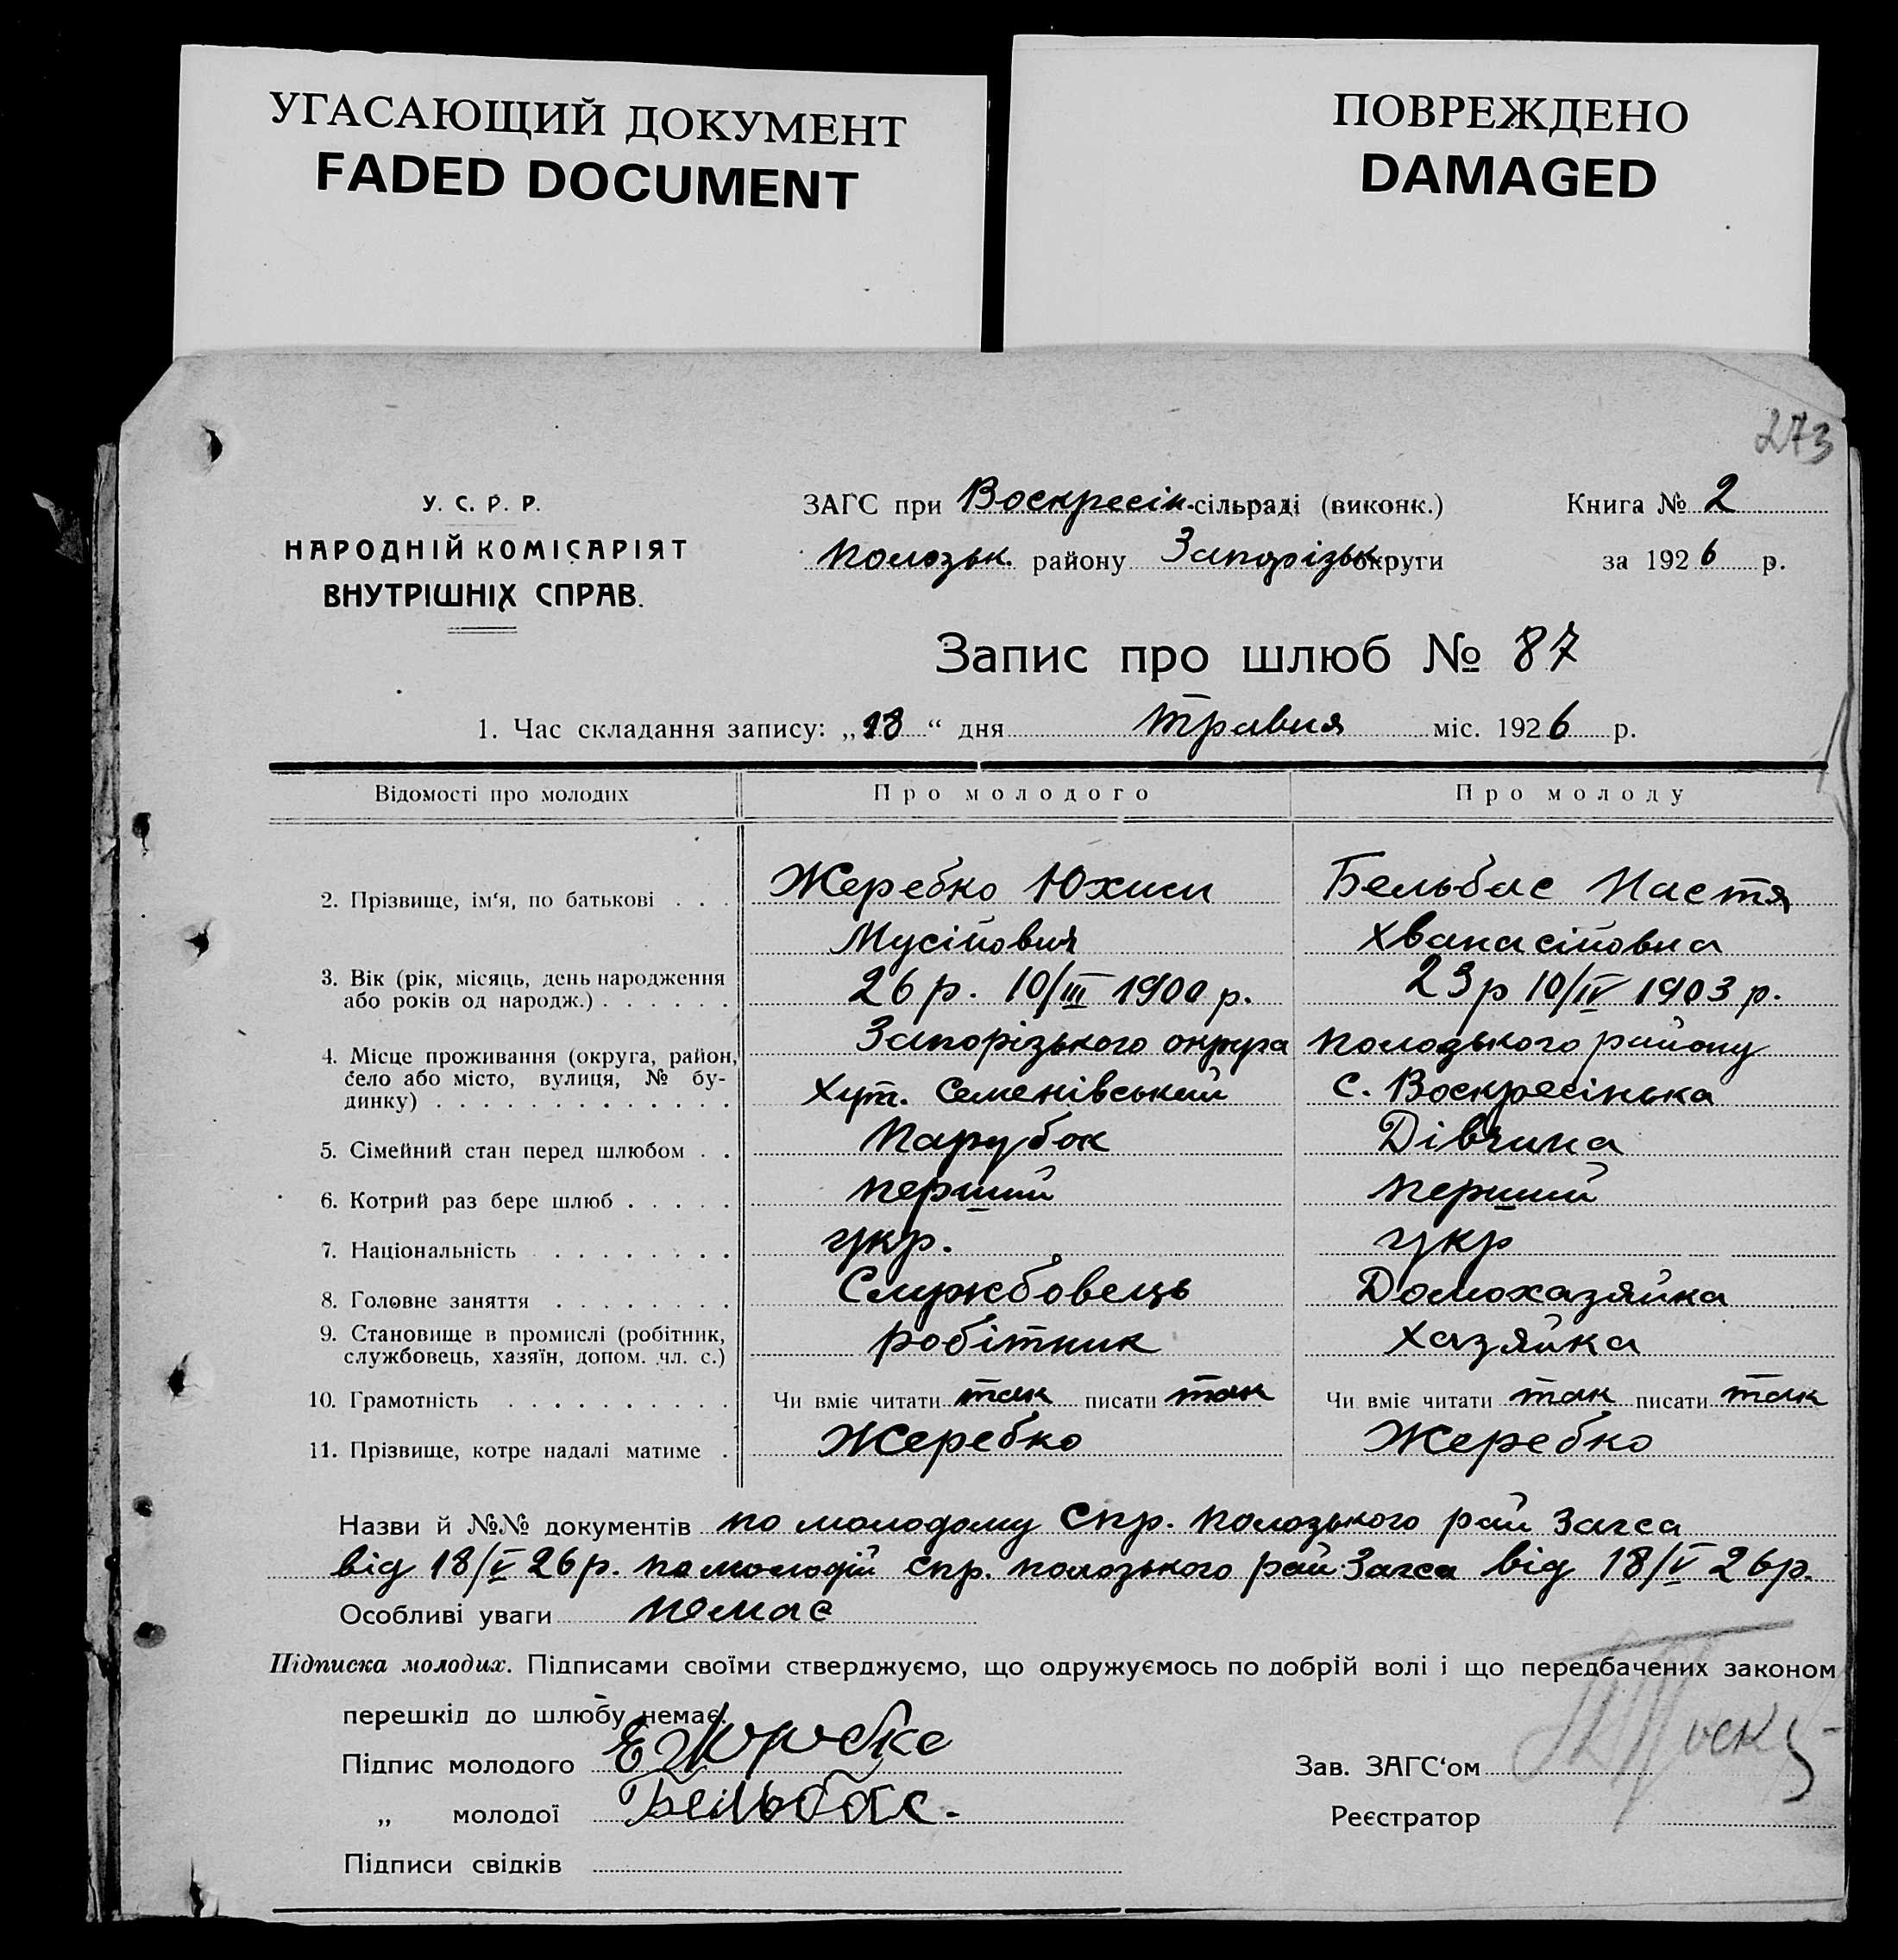 УГАСАЮЩИЙ ДОКУМЕНТ
FADED DOCUMENT
ПОВРЕЖДЕНО
DAMAGED
273
У. С. Р. Р.
НАРОДНІЙ КОМІСАРІЯТ
ВНУТРІШНІХ СПРАВ.
ЗАГС при Воскресін. сільраді (виконк.)
Полозьк. району Запорізьк округи
Книга № 2
за 1926 р.
Запис про шлюб № 87
1. Час складання запису: „18“ дня травня міс. 1926 р.
Відомості про молодих Про молодого Про молоду
2. Прізвище, ім‘я, по батькові . . . Жеребко Юхим Бельбас Настя
Мусійович Хванасійовна
3. Вік (рік, місяць, день народження
або років од народж.) . . . . . . 26 р. 10/III 1900 р. 23 р 10/IV 1903 р.
4. Місце проживання (округа, район, Запорізького округа Полозького району
село або місто, вулиця, № бу-
динку) . . . . . . . . . . . . . Хут. Семенівський с. Воскресінька
5. Сімейний стан перед шлюбом . . Парубок Дівчина
6. Котрий раз бере шлюб . . . . . перший перший
7. Національність . . . . . . . . укр. укр
8. Головне заняття . . . . . . . . Службовець Домохазяйка
9. Становище в промислі (робітник,
службовець, хазяїн, допом. чл. с.) робітник хазяйка
10. Грамотність . . . . . . . . . . Чи вміє читати так писати так Чи вміє читати так писати так
11. Прізвище, котре надалі матиме . Жеребко Жеребко
Назви й №№ документів по молодому Спр. Полозького рай Загса
від 18/V 26 р. по молодій спр. Полозького рай Загса від 18/V 26 р.
Особливі уваги немає
Підписка молодих. Підписами своїми стверджуємо, що одружуємось по добрій волі і що передбачених законом
перешкід до шлюбу немає.
Підпис молодого Е Жеребко
„ молодої Бельбас.
Підписи свідків
Зав. ЗАГС‘ом
Реєстратор